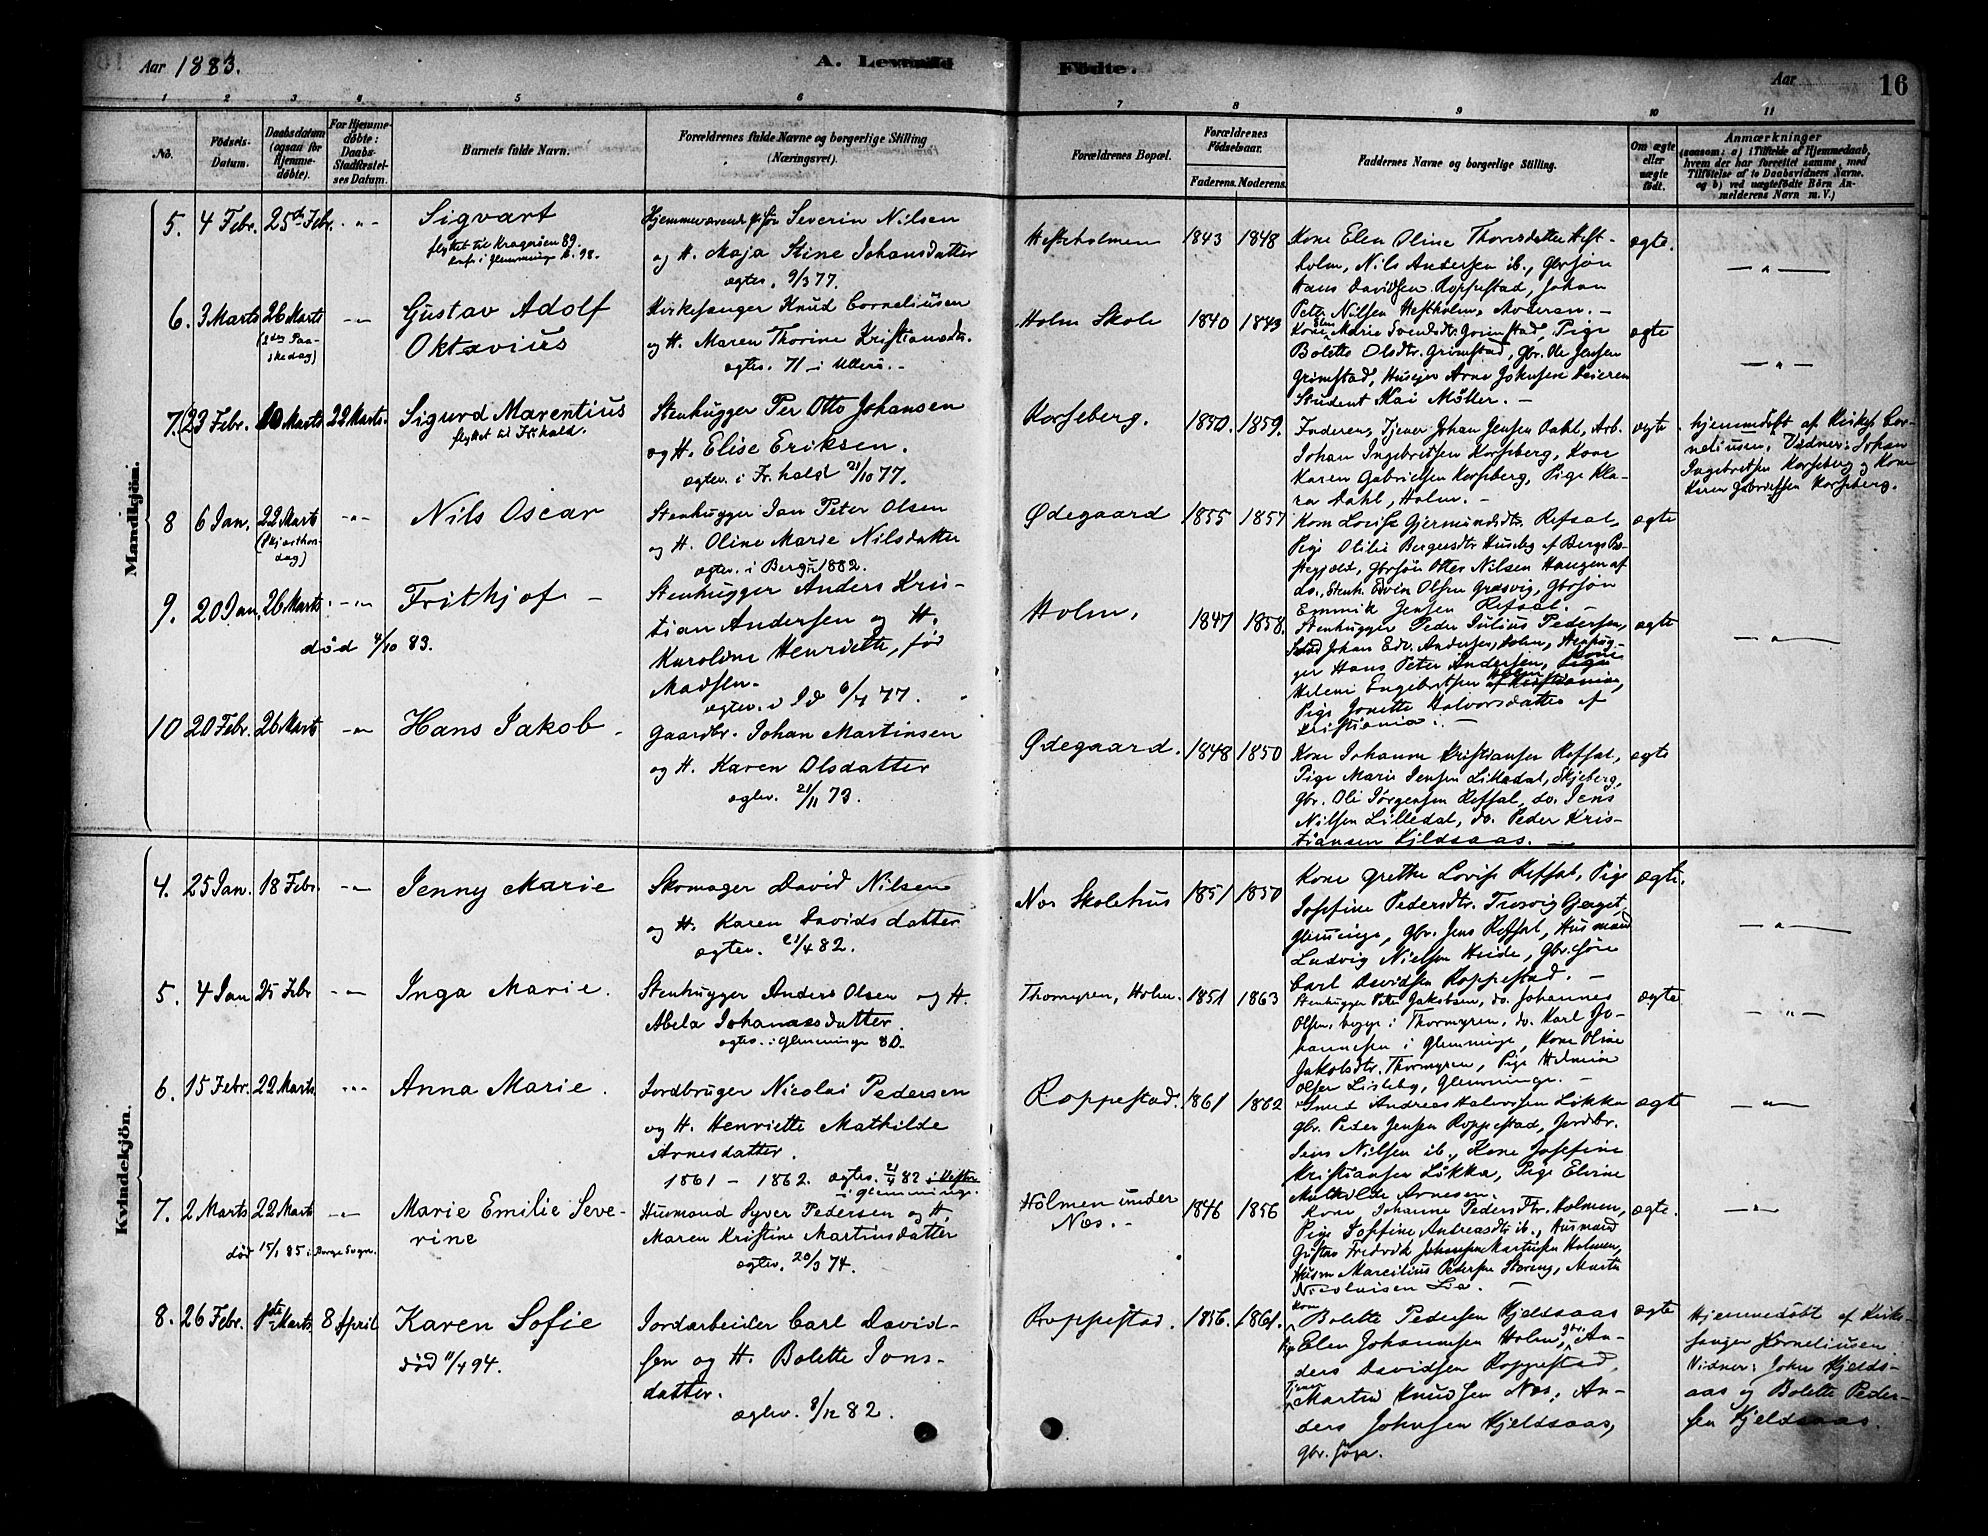 Aar 1883.
A. Levende
Fødte.
Aar
16
1 2 3 4 5 6 7 8 9 10 11
No.
Fødsels-
Datum.
Daabsdatum
(ogsaa for
Hjemme-
døbte).
For Hjemme-
døbte:
Daabs-
Stadfæstel-
ses Datum.
Barnets fulde Navn.
Forældrenes fulde Navne og borgerlige Stilling
(Næringsvei).
Forældrenes Bopæl.
Forældrenes
Fødselsaar.
Faderens. Moderens.
Faddernes Navne og borgerlige Stilling.
Om ægte
eller
uægte
født.
Anmærkninger
(saasom: a) i Tilfælde af Hjemmedaab,
hvem der har forrettet samme, med
Tilføielse af to Daabsvidners Navne.
og b) ved uægtefødte Børn An-
melderens Navn m. V.)
Mandkjön.
5. 4 Febr. 25de Febr. -"-
Sigvart
flyttet til Kragerøen 89.
konf. i Glemminge 98.
Hjemmeværende Severin Nilsen
og H. Maja Stine Johansdatter
ægtev. 9/3 77.
Hestholmen 1843 1848
Kone Elen Oline Thoresdatter Hest-
holm, Nils Andersen ib., gbrsøn
Hans Davidsen Roppestad, Johan
Peter Nilsen Hestholm,
ægte.
-"-
6. 3 Marts 26 Marts -"-
(2den Paa-
skedag)
Gustav Adolf
Oktavius
Kirkesanger Knud Corneliusen
og H. Maren Thorine Kristiansdtr.
ægtev. 71 i Ullerø.-
Holm Skole 1840 1843
Kone Elen Marie Svendsdtr. Grimstad, Pige
Bolette Olsdtr. Grimstad, gbr. Ole Jensen
Grimstad, Husejer Arne Johnsen
Student Kai Møller. -
ægte
-"-
7. 23 Febr. 10 Marts 22 Marts.
Sigurd Marentius
flyttet til Fr.hald.
Stenhugger Per Otto Johansen
og H. Elise Eriksen.
ægtev. i Fr.hald 21/10 77.
Korseberg. 1850. 1859.
Faderen, Tjener Johan Jensen Dahl, Arb.
Johan Ingebretsen Korseberg, Kone
Karen Gabrielsen Korseberg, Pige Kla-
ra Dahl, Holm. -
ægte
hjemmedøbt af Kirkes. Cor-
neliusen. Vidner: Johan
Ingebretsen Korseberg og Kone
Karen Gabrielsen Korseberg.
8 6 Jan. 22 Marts -"-
(Skjærthors-
dag)
Nils Oscar
Stenhugger Jan Peter Olsen
og H. Oline Marie Nilsdatter
ægtev. i Berg 1882.
Ødegaard 1855 1857
Kone Lovise Gjermundsdtr. Refsal,
Pige Otilie Bergersdtr. Huseby af Bergs Præ-
stegjeld, gbrsøn Otto Nilsen Haugen af
do., Stenh. Edvin Olsen Græsvig, gbrsøn
Emmik Jensen Refsal. -
ægte
9. 20 Jan. 26 Marts -"-
død 4/10 83.
Frithjof -
Stenhugger Anders Kris-
tian Andersen og H.
Karoline Henriette, fød
Madsen.
ægtev. i Id 6/7 77.
Holm. 1847 1858.
Stenhugger Peder Julius Pedersen,
Johan Edv. Andersen, Holm, Stenhug-
ger Hans Peter Andersen, Kone
Helene Engebretsen Holm
Pige Jonette Halvorsdatter af
Kristiania. -
ægte
-"-
10 20 Febr. 26 Marts -"-
Hans Jakob.
Gaardbr. Johan Martinsen
og H. Karen Olsdatter
ægtev. 21/11 73.
Ødegaard. 1848 1850
Kone Johanne Kristiansen Refsal,
Pige Marie Jensen Lilledal, Skjeberg,
gbr. Ole Jørgensen Refsal, do. Jens
Nilsen Lilledal, do. Peder Kris-
tiansen Kjeldsaas. -
ægte
Kvindekjön.
4. 25 Jan. 18 Febr. -"-
Jenny Marie
Skomager David Nilsen
og H. Karen Davidsdatter
ægtev. 21/4 82.
Næs Skolehus 1851 1850
Kone Grethe Lovise Refsal, Pige
Josefine Pedersdtr. Trosvig
Glemminge, gbr. Jens Refsal, Husmand
Ludvig Nielsen Heide, gbr.søn
Carl Davidsen Roppestad. -
ægte.
-"-
5. 4 Jan 25 Febr -"-
Inga Marie.
Stenhugger Anders Olsen og H.
Abela Johannesdatter.
ægtev. i Glemminge 80.
Thormyren, Holm. 1851 1863
Stenhugger Peter Jakobsen, do. Johannes
Olsen, begge i Thormyren, do. Karl Jo-
hannesen i Glemminge, Kone Oline
Jakobsdtr. Thormyren, Pige Helmine
Olsen Lisleby, Glemminge. -
ægte
-"-
6. 15 Febr. 22 Marts. -"-
Anna Marie.
Jordbruger Nicolai Pedersen
og H. Henriette Mathilde
Arnesdatter.
1861 - 1862. ægtev. 21/4 82
i Glemminge.
Roppestad. 1861 1862
Smed Andreas Halvorsen Løkka
gbr. Peder Jensen Roppestad, Jordbr.
Jens Nilsen ib., Kone Josefine
Kristiansen Løkka, Pige Elvine
Mathilde Arnesen.
ægte
-"-
7. 2 Marts 22 Marts -"-
død 15/1 85 i Borge Sogn.
Marie Emilie Seve-
rine
Husmand Syver Pedersen og H.
Maren Kristine Martinsdatter
ægtev. 20/3 74.
Holmen under
Næs. -
1846 1856
Kone Johanne Pedersdtr. Holmen,
Pige Josefine Andreasdtr. ib., Husmand
Gustav Fredrik Johansen Martinsen Holmen,
Husm. Marcilius Pedersen Storeng, Martin
Nicolaisen Lie. -
ægte.
-"-
8. 26 Febr. 1ste Marts 8 April
Karen Sofie
død 11/4 94.
Jordarbeider Carl David-
sen og H. Bolette Jons-
datter.
ægtev. 8/12 82.
Roppestad. 1856. 1861.
Kone Bolette Pedersen Kjeldsaas
Pige Elen Johannesen Holm, gbr. An-
ders Davidsen Roppestad,
Tjener Martin Knudsen Næs, An-
ders Johnsen Kjeldsaas,
gbr. søn.
ægte
Hjemmedøbt af Kirke-
sanger Korneliusen.
Vidner: John Kjelds-
aas og Bolette Peder-
sen Kjeldsaas.